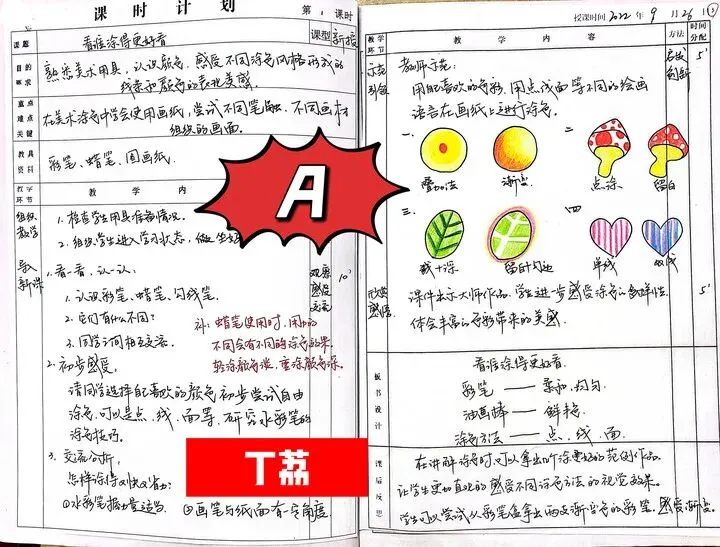 课时计划 第1课时
课题 看谁涂得更好看 课型 新授
目的要求 熟悉美术用具,认识颜色,感受不同涂色风格形成的
线条和颜色的表现美感.
重点难点关键 在美术涂色中学会使用画纸,尝试不同笔触、不同画材
组织的画面.
教具资料 彩笔、蜡笔、图画纸.
教学环节 教学内
组织教学 1.检查学生用具准备情况.
2.组织学生进入学习状态,做
导入新课 1.看一看,认一认.
观察感受交流 10'
1.认识彩笔、蜡笔、勾线笔.
2.它们有什么不同?
3.同学之间相互交流.
蜡笔使用时,用力的
不同会有不同的涂色效果.
轻涂颜色淡,重涂颜色深.
2.初步感受
请同学选择自己喜欢的颜色初步尝试自由
涂色,可以是点、线、面等,研究水彩笔的
涂色技巧.
3.交流分析,
怎样涂得又快又省力?
①水彩笔握力量适当. ②画笔与纸面有一定角度.
A
丁荔
授课时间2022年9月26日
教学环节 教学内容 方法 时间分配
示范引领 教师示范: 5'
用自己喜欢的色彩,用点线面等不同的绘画
语言在画纸上进行涂色.
一、 二、
叠加法 渐变 点涂 留白
三、 四
线+涂 留白+勾边 单线 双线
欣赏感悟 课件出示大师作品.学生进一步感受涂色的多样性. 5'
体会丰富的色彩带来的美感.
板书设计 看谁涂得更好看.
彩笔——柔和、均匀.
油画棒——鲜艳.
涂色方法——点、线、面.
课后反思 在讲解涂色时,可以拿出几个涂更好的范例作品.
让学生更加直观的感受不同涂色方法的视觉效果.
学生可以尝试从彩笔盒拿出两支渐变色的彩笔.感受渐变.